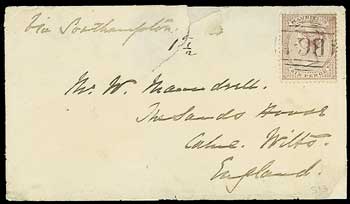 via Southampton
MAURITIUS
SIX PENCE
B65
Mr. W. Maundrell.
The Sands House
Calne. Wilts.
England.